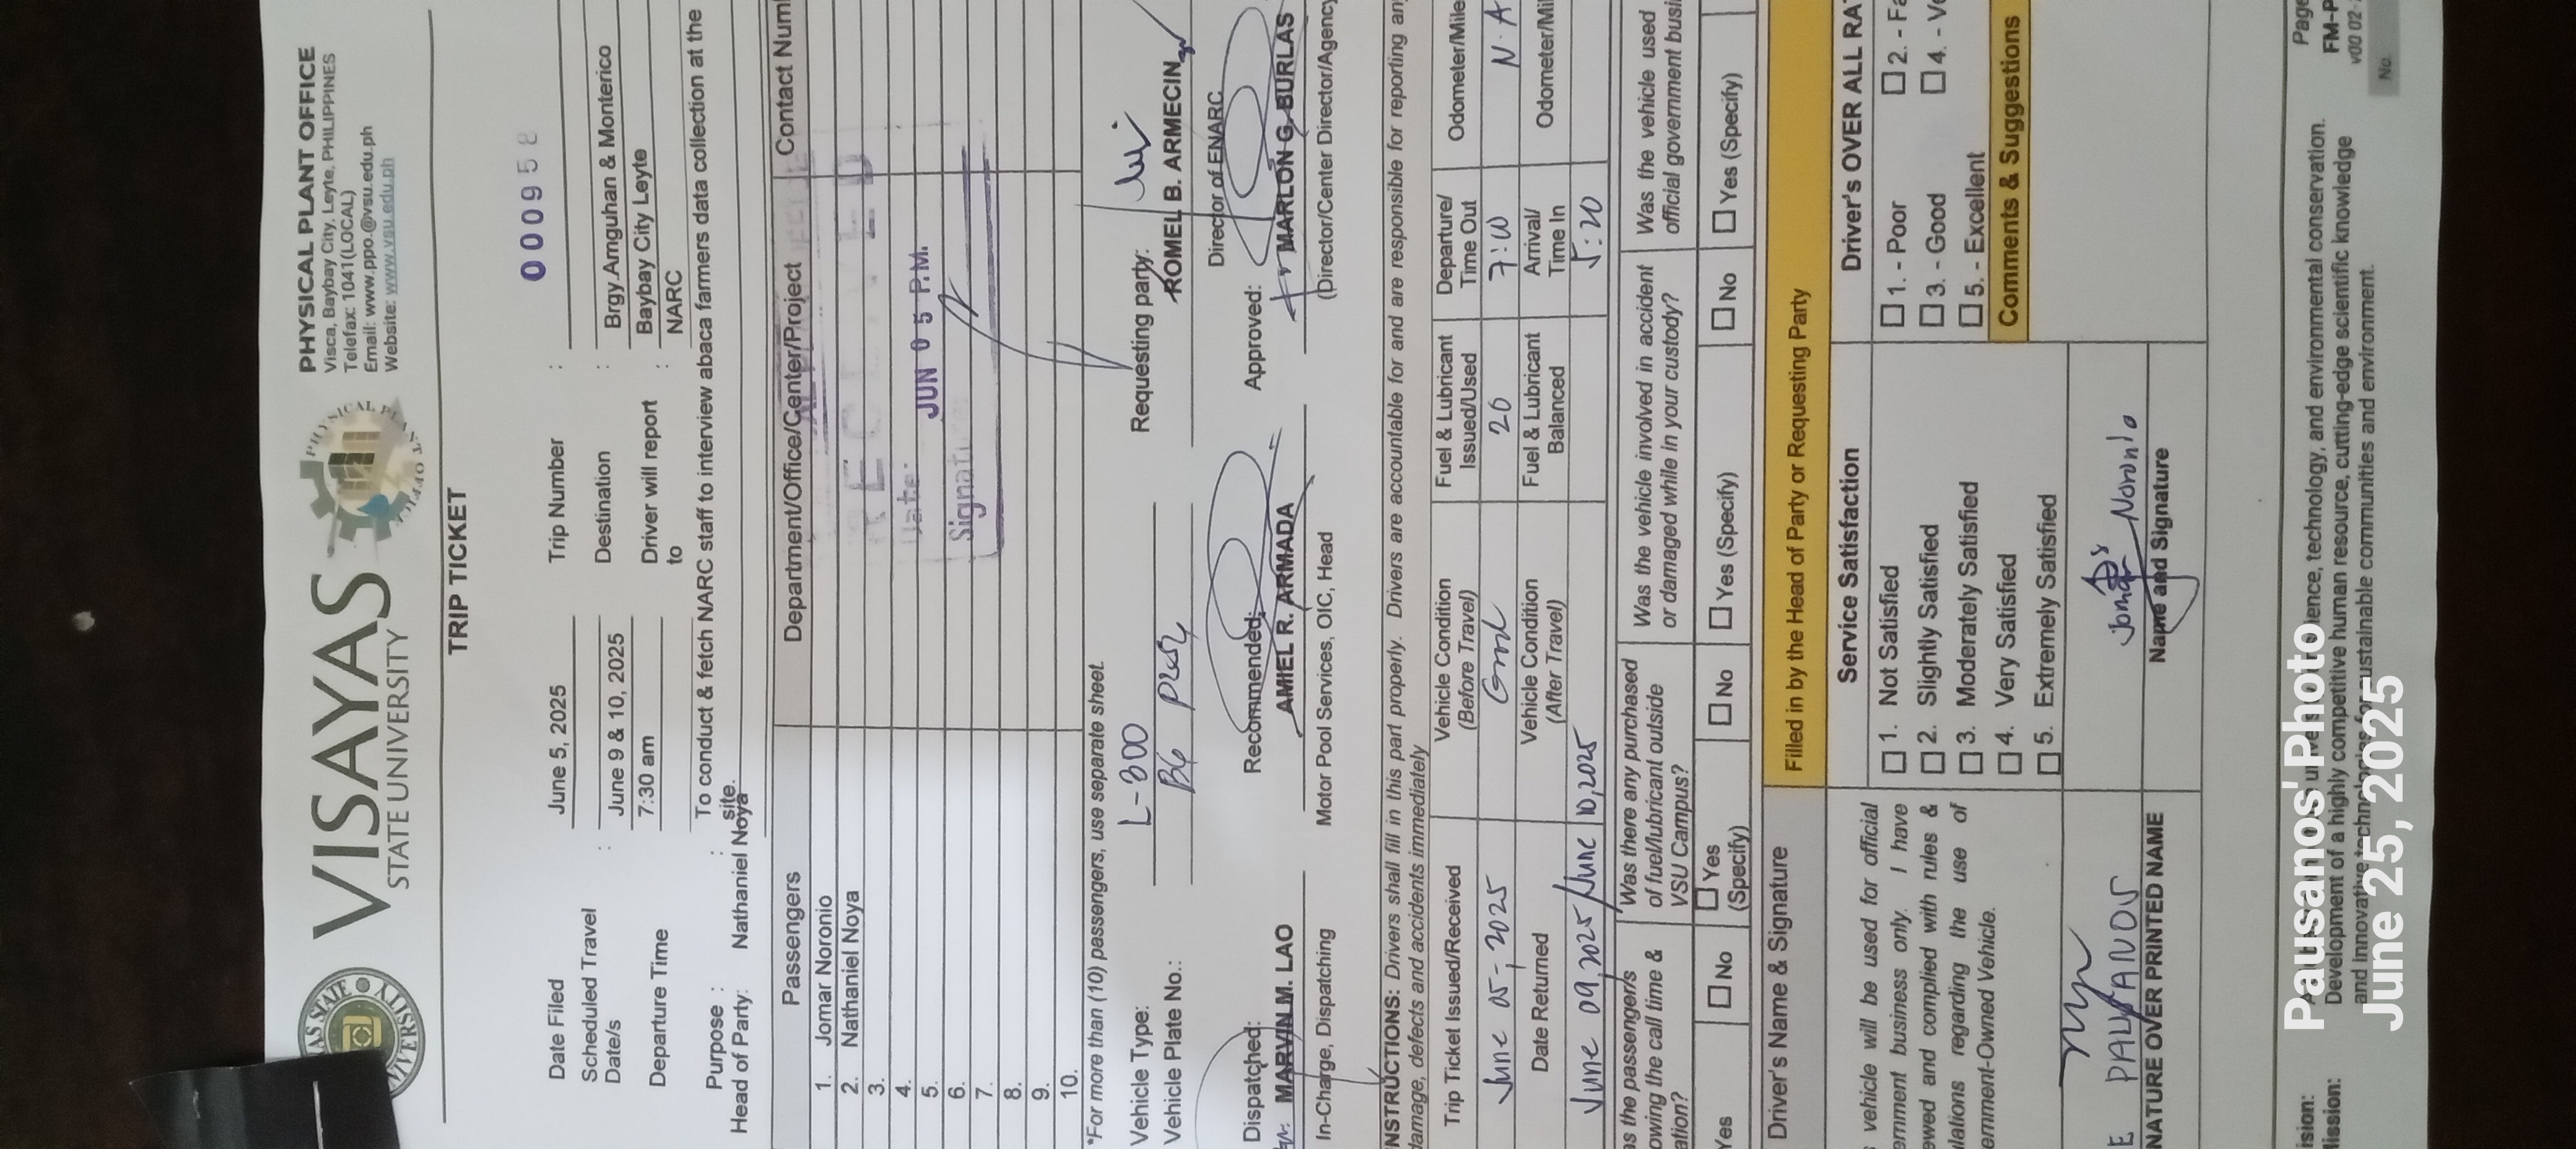 VISAYAS
STATE UNIVERSITY
PHYSICAL PLANT OFFICE
Visca, Baybay City, Leyte, PHILIPPINES
Telefax: 1041(LOCAL)
Email: www.ppo.@vsu.edu.ph
Website: www.vsu.edu.ph
TRIP TICKET
000958
Date Filed June 5, 2025 Trip Number :
Scheduled Travel Date/s : June 9 & 10, 2025 Destination : Brgy.Amguhan & Monterico
Baybay City Leyte
Departure Time 7:30 am Driver will report to : NARC
Purpose : : To conduct & fetch NARC staff to interview abaca farmers data collection at the
site.
Head of Party: Nathaniel Noya
Passengers Department/Office/Center/Project Contact Num
1. Jomar Noronio
2. Nathaniel Noya
3.
4.
5.
6.
7.
8.
9.
10.
RECEIVED
Date:
JUN 05 P.M.
Signatu
*For more than (10) passengers, use separate sheet.
Vehicle Type: L-300
Vehicle Plate No.:
Requesting party: ROMEL B. ARMECIN
Director of ENARC
Dispatched: MARVIN M. LAO
In-Charge, Dispatching
Recommended: AMIEL R. ARMADA
Motor Pool Services, OIC, Head
Approved: for MARLON G. BURLAS
(Director/Center Director/Agency
NSTRUCTIONS: Drivers shall fill in this part properly. Drivers are accountable for and are responsible for reporting any
damage, defects and accidents immediately
Trip Ticket Issued/Received Vehicle Condition (Before Travel) Fuel & Lubricant Issued/Used Departure/ Time Out Odometer/Mile
June 05, 2025 Good 20 7:00 N.A
Date Returned Vehicle Condition (After Travel) Fuel & Lubricant Balanced Arrival/ Time In Odometer/Mil
June 09, 2025/June 10, 2025 5:20
as the passenger/s
owing the call time &
ation?
Was there any purchased
of fuel/lubricant outside
VSU Campus?
Was the vehicle involved in accident
or damaged while in your custody?
Was the vehicle used
official government busi
Yes No Yes (Specify) No Yes (Specify) No Yes (Specify)
Driver's Name & Signature Filled in by the Head of Party or Requesting Party
vehicle will be used for official
ernment business only. I have
ewed and complied with rules &
ulations regarding the use of
ernment-Owned Vehicle.
Service Satisfaction
1. Not Satisfied
2. Slightly Satisfied
3. Moderately Satisfied
4. Very Satisfied
5. Extremely Satisfied
Driver's OVER ALL RA
1. - Poor 2. - Fa
3. - Good 4. - Ve
5. - Excellent
Comments & Suggestions
E PAUSANOS
NATURE OVER PRINTED NAME
Jomar Noronio
Name and Signature
ision:
lence, technology, and environmental conservation.
Mission: Development of a highly competitive human resource, cutting-edge scientific knowledge
and innovative technologies for sustainable communities and environment.
Page
FM-P
v00 02-
No.
Pausanos' Photo
June 25, 2025